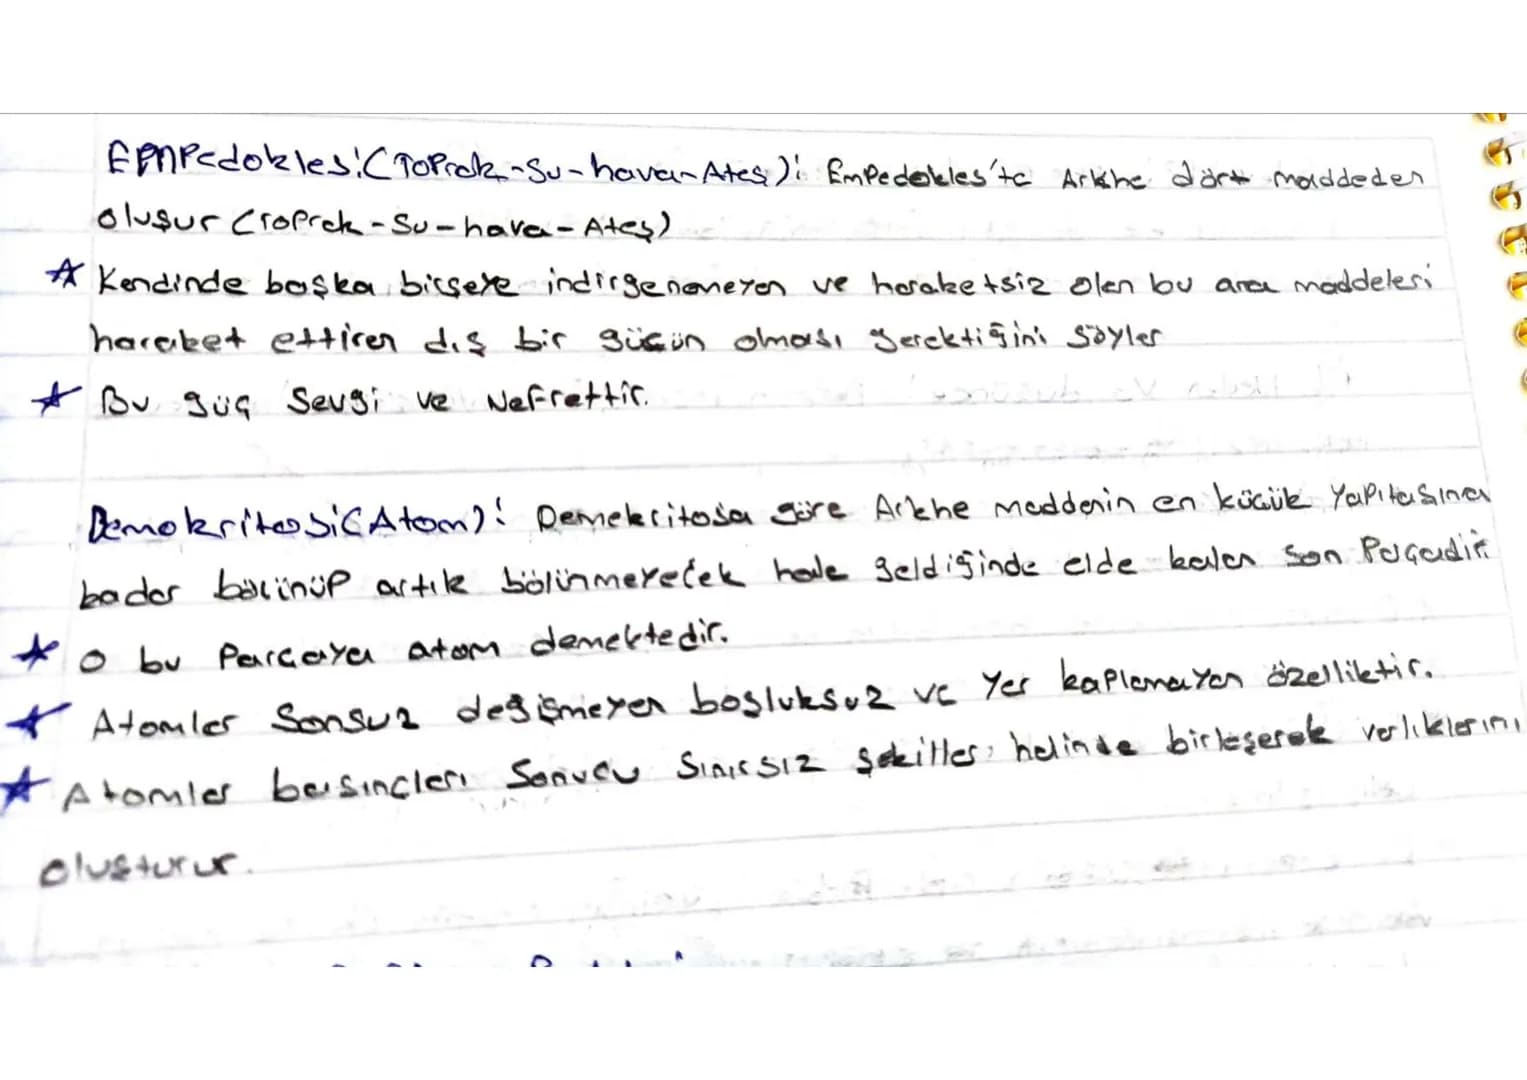 Empedokles: (Toprak-Su-hava-Ateş): Empedokles'te Arkhe dört maddeden
oluşur (Toprak-Su-hava-Ateş)
☆ Kendinde başka birşeye indirgenemeyen ve haraketsiz olan bu ana maddeleri
haraket ettiren dış bir gücün olması gerektiğini söyler
☆ Bu güç Sevgi ve Nefrettir.
Demokritos: (Atom): Demokritosa göre Arkhe maddenin en küçük yapıtaşına
kadar bölünüp artık bölünmeyecek hale geldiğinde elde kalan son Parçadır
☆ O bu Parçaya atom demektedir.
☆ Atomlar Sonsuz değişmeyen boşluksuz ve Yer kaplamayan özelliktir.
☆ Atomlar basınçları Sonucu Sınırsız şekiller halinde birleşerek varlıklarını
oluşturur.